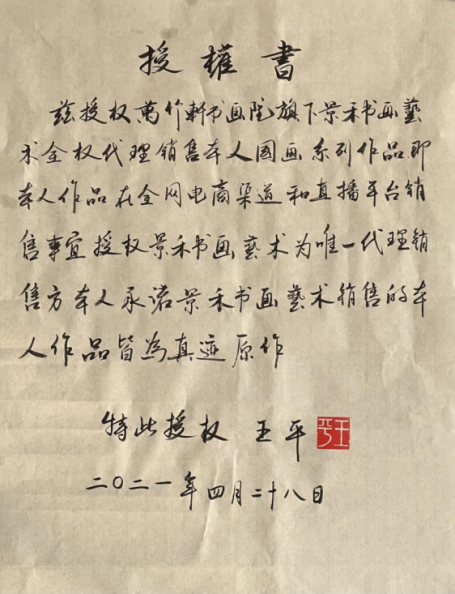 授權書
兹授权萬竹軒书画院旗下景禾书画藝
术全权代理销售本人國画系列作品即
本人作品在全网电商渠道和直播平台销
售事宜授权景禾书画藝术为唯一代理销
售方本人承诺景禾书画藝术销售的本
人作品皆為真迹原作
特此授权 王平 王平
二〇二一年四月二十八日